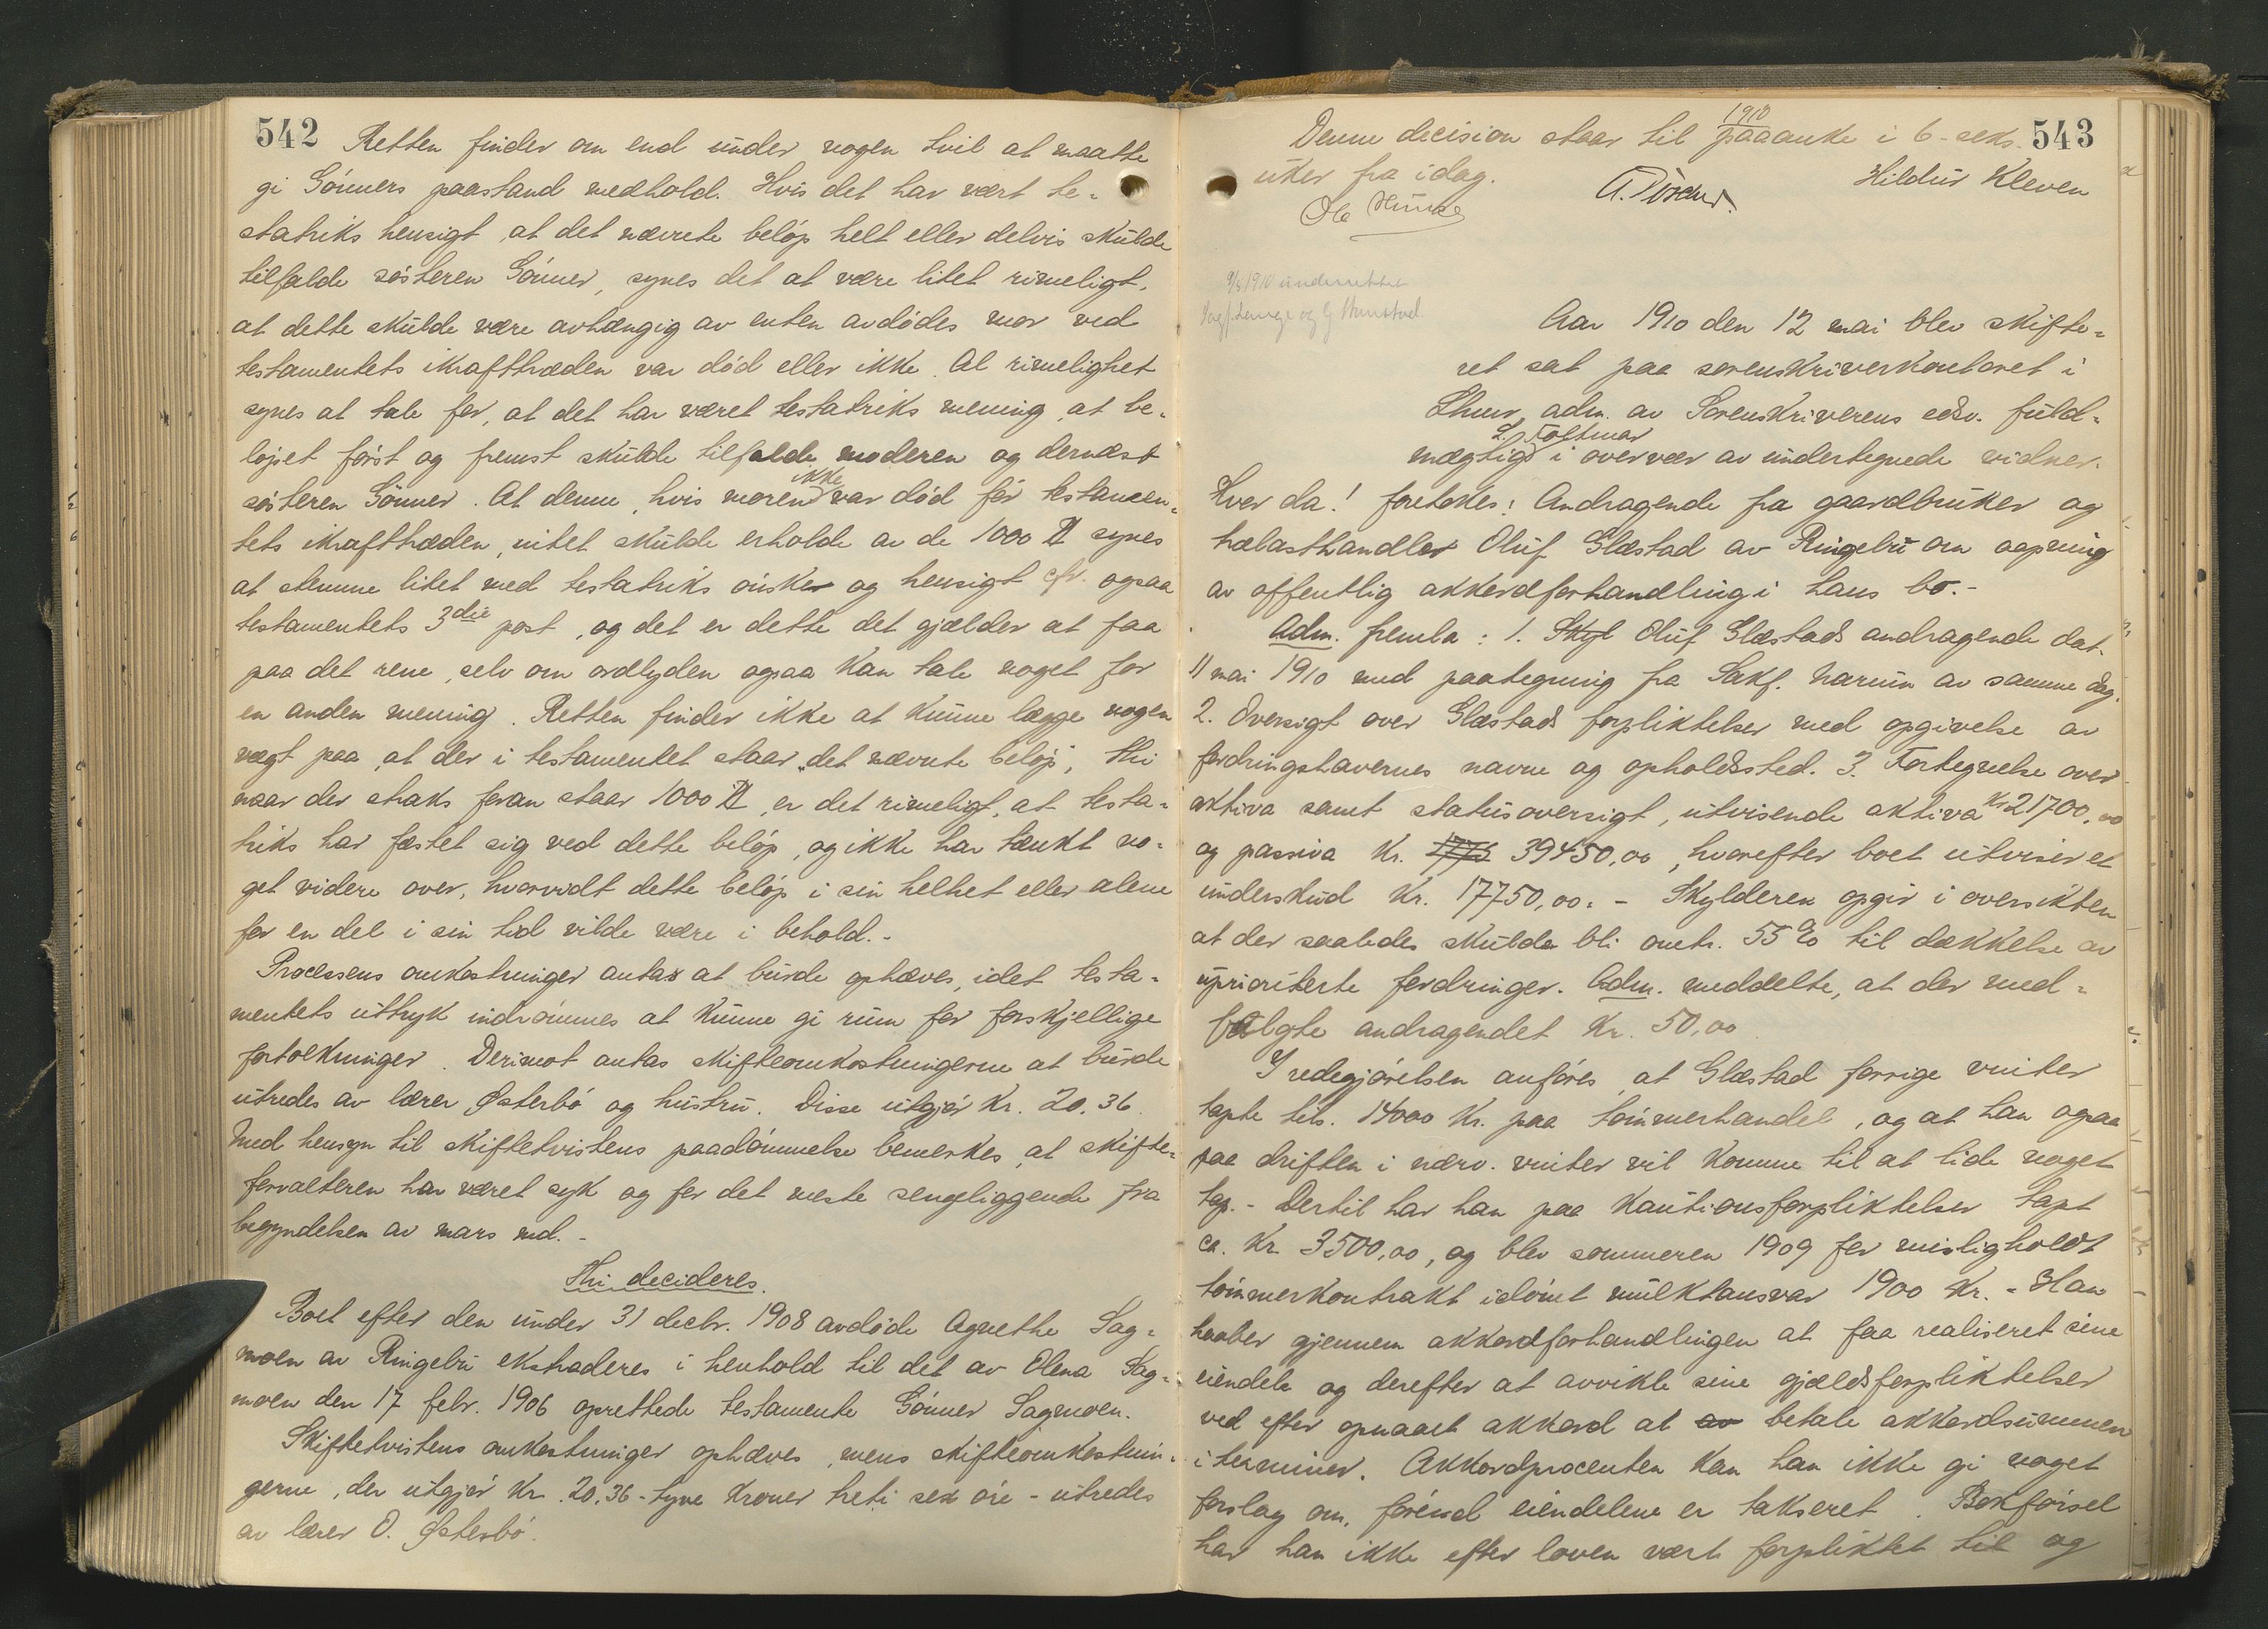 542
Retten finder om end under nogen tvil at maatte
gi Gönners paastand medhold. Hvis det har vært te-
statriks hensigt, at det nævnte beløp helt eller delvis skulde
tilfalde søsteren Gönner, synes det at være litet rimeligt,
at dette skulde være avhængig av enten avdödes mor ved
testamentets ikrafttræden var död eller ikke. Al rimelighet
synes at tale for, at det har været testatriks mening, at be-
löpet först og fremst skulde tilfalde moderen og dernæst
ikke
sösteren Gönner. At denne, hvis moren var död för testamen-
tets ikrafttræden, intet skulde erholde av de 1000 synes
at stemme litet med testatriks önsker og hensigt cfr. ogsaa
testamentets 3die post, og det er dette det gjælder at faa
paa det rene, selv om ordlyden ogsaa kan tale noget for
en anden mening. Retten finder ikke at kunne lægge nogen
vægt paa, at der i testamentet staar "det nævnte belöp", thi
naar der straks foran staar 1000, er det rimeligt, at testa-
triks har fæstet sig ved dette belöp, og ikke har tænkt no-
get videre over, hvorvidt dette belöp i sin helhet eller alene
for en del i sin tid vilde være i behold.-
Processens omkostninger antas at burde ophæves, idet testa-
mentets uttryk indrömmes at kunne gi rum for forskjellige
fortolkninger. Derimot antas skifteomkostningerne at burde
utredes av lærer Østerbö og hustru. Disse utgjör Kr. 20.36.
Med hensyn til skiftetvistens paadömmelse bemerkes, at skifte-
forvalteren har været syk og for det meste sengeliggende fra
begyndelsen av mars md.-
Thi decideres.
Boet efter den under 31 decbr. 1908 avdöde Agnethe Sag-
moen av Ringebu ekstraderes i henhold til det av Olena Sag-
moen den 17 febr. 1906 oprettede testamente Gönner Sagmoen.
Skiftetvistens omkostninger ophæves, mens skifteomkostnin-
gerne, der utgjör Kr. 20.36 - tyve kroner treti sex öre - utredes
av lærer O. Østerbö.
543
1910
Denne decision staar til paaanke i 6 - seks
uker fra idag.
Hildur Kleven
9/5 1910 underrettet
Aar 1910 den 12 mai blev skifte-
ret sat paa sorenskriverkontoret i
adm. av Sorenskriverens edsv. fuld-
mægtig i overvær av undertegnede vidner.
Hvor da! foretokes: Andragende fra gaardbruker og
trælasthandler Oluf Glæstad av Ringebu om aapning
av offentlig akkordforhandling i hans bo.-
Adm. fremla: 1. Oluf Glæstads andragende dat.
11 mai 1910 med paategning fra Sakf. Narum av samme dag.
2. Oversigt over Glæstads forpliktelser med opgivelse av
fordringshavernes navne og opholdssted. 3. Fortegnelse over
aktiva samt statusoversigt, utvisende aktiva Kr 21700,00
og passiva Kr. 39450,00, hvorefter boet utviser et
underskud Kr. 17750,00. - Skylderen opgir i oversikten
at der saaledes skulde bli omtr. 55 % til dækkelse av
uprioriterte fordringer. Adm. meddelte, at der med-
fulgte andragendet Kr. 50,00
I redegjörelsen anföres, at Glæstad forrige vinter
tapte tils. 14000 Kr. paa tömmerhandel, og at han ogsaa
paa driften i nærv. vinter vil komme til at lide noget
tap. - Dertil har han paa kautionsforpliktelser tapt
ca. Kr. 3500,00, og blev sommeren 1909 for misligholdt
tömmerkontrakt idömt mulktansvar 1900 Kr. - Han
haaber gjennem akkordforhandlingen at faa realiseret sine
eiendele og derefter at avvikle sine gjældsforpliktelser
ved efter opnaaet akkord at av betale akkordsummen
i terminer. Akkordprocenten kan han ikke gi noget
forslag om, förend eiendelene er takseret. Bokförsel
har han ikke efter loven vært forpliktet til og